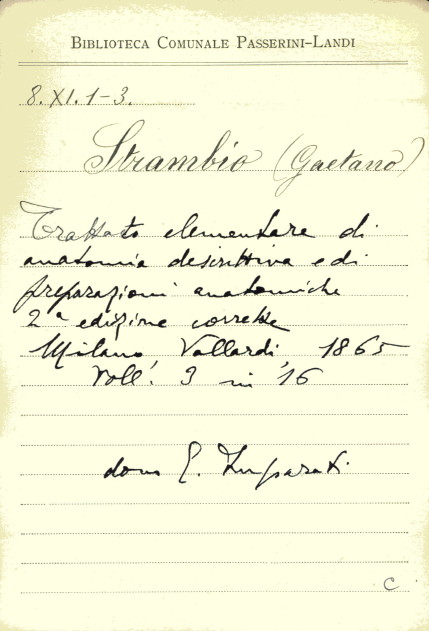 BIBLIOTECA COMUNALE PASSERINI-LANDI
8. XI. 1-3.
Strambio (Gaetano)
Trattato elementare di
anatomia descrittiva e di
preparazioni anatomiche
2ª edizione corretta
Milano, Vallardi, 1865
Voll. 3 in 16
dono E. Imparati
C